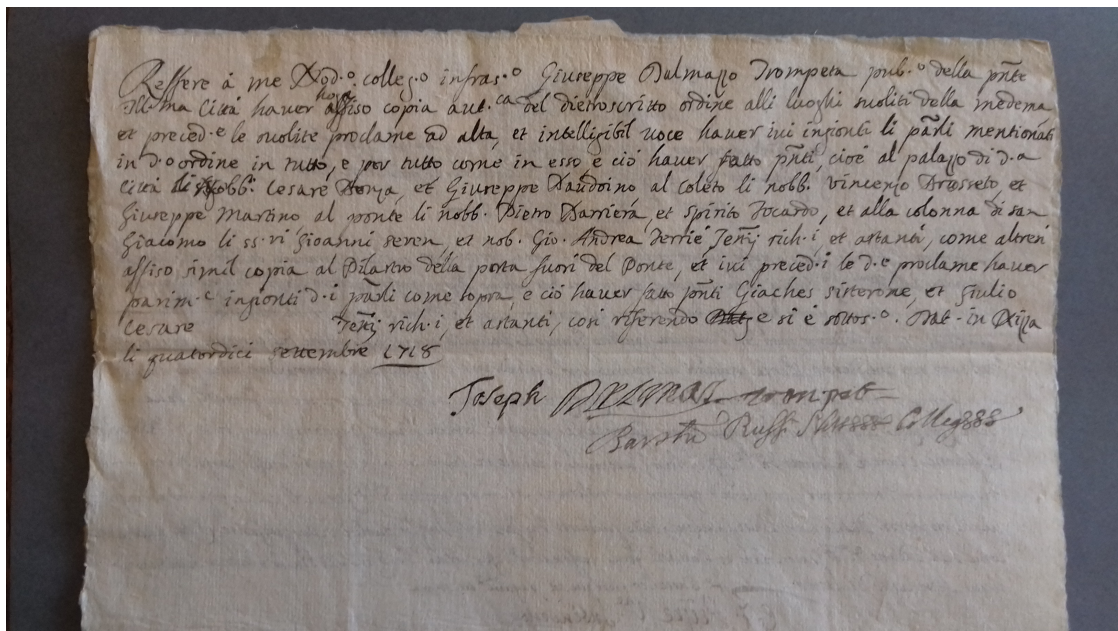 Refferé à me Nod.o colleg.o infras.o Giuseppe Dalmazzo Trompeta pub.o della pñte
Ill.ma Città haver hoggi affiso copia aut.ca del dietroscritto ordine alli luoghi suoliti della medema
et preced.e le suolite proclame ad alta, et intelligibil voce haver ivi ingionti li pãrli mentionati
in d.o ordine in tutto, e per tutto come in esso e ciò haver fatto pñti, cioé al palazzo di d.a
Città li nobb. Cesare et Giuseppe Daudoino al coleto li nobb. Vincenzo et
Giuseppe Martino al ponte li nobb. Pietro Barriera, et Spirito Focardo, et alla colonna di san
Giacomo li ss.ri Gioanni seren, et nob. Gio. Andrea Ferrié Testij rich.i et astanti, come altresi
affiso simil copia al Pilastro della porta fuori del Ponte, et ivi preced.i le d.e proclame haver
parim.e ingionti d.i pãrli come sopra e ciò haver fatto pñti Giaches sisterone, et Giulio
Cesare Testij rich.i, et astanti, cosi riferendo e si è sottos.o. Dat. in Nizza
li quatordici settembre 1718
Joseph Dalmas trompet